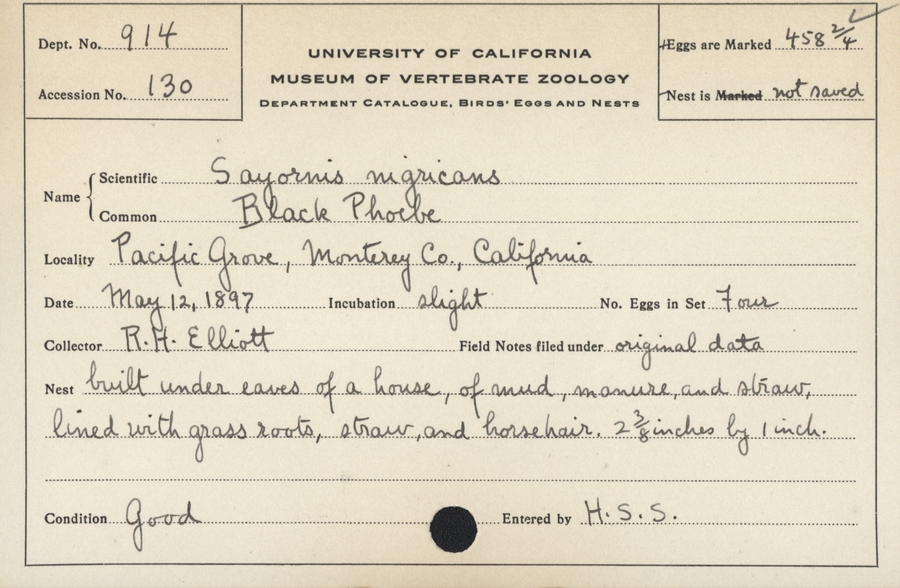 Dept. No. 914
Accession No. 130
UNIVERSITY OF CALIFORNIA
MUSEUM OF VERTEBRATE ZOOLOGY
DEPARTMENT CATALOGUE, BIRDS' EGGS AND NESTS
Eggs are Marked 458 2/4
Nest is Marked not saved
Name
Scientific Sayornis nigricans
Common Black Phoebe
Locality Pacific Grove, Monterey Co., California
Date May 12, 1897 Incubation slight No. Eggs in Set Four
Collector R.H. Elliott Field Notes filed under original data
Nest built under eaves of a house, of mud, manure, and straw,
lined with grass roots, straw, and horsehair. 2 3/8 inches by 1 inch.
Condition Good Entered by H.S.S.